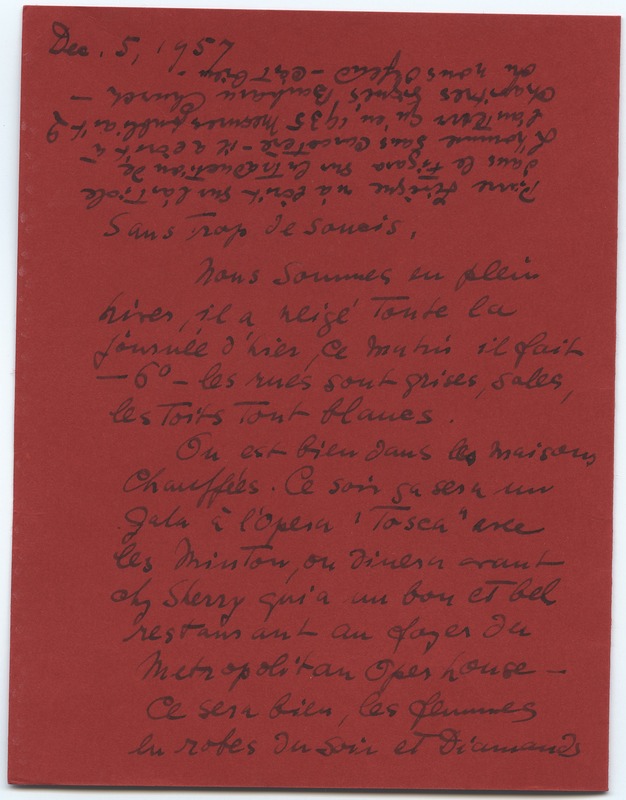 Dec. 5, 1957
Sans trop de soucis.
Nous sommes en plein
hiver, il a neigé toute la
journée d'hier, ce matin il fait
– 6° – les rues sont grises, sales,
les toits tout blancs.
On est bien dans les maisons
chauffées. Ce soir ça sera un
Gala à l'Opera "Tosca" avec
les Minton, on dinera avant
chez Sherry qui a un bon et bel
restaurant au foyer du
Metropolitan Opera house –
Ce sera bien, les femmes
en robes du soir et Diamands
Pierre m'a écrit sur l'article
dans le Figaro sur la traduction de
L'homme sans – il a écrit à
qu'en 1935 Mesures publiait 2
chapitres signés Barbara Church –
on nous défend – c'est bien –